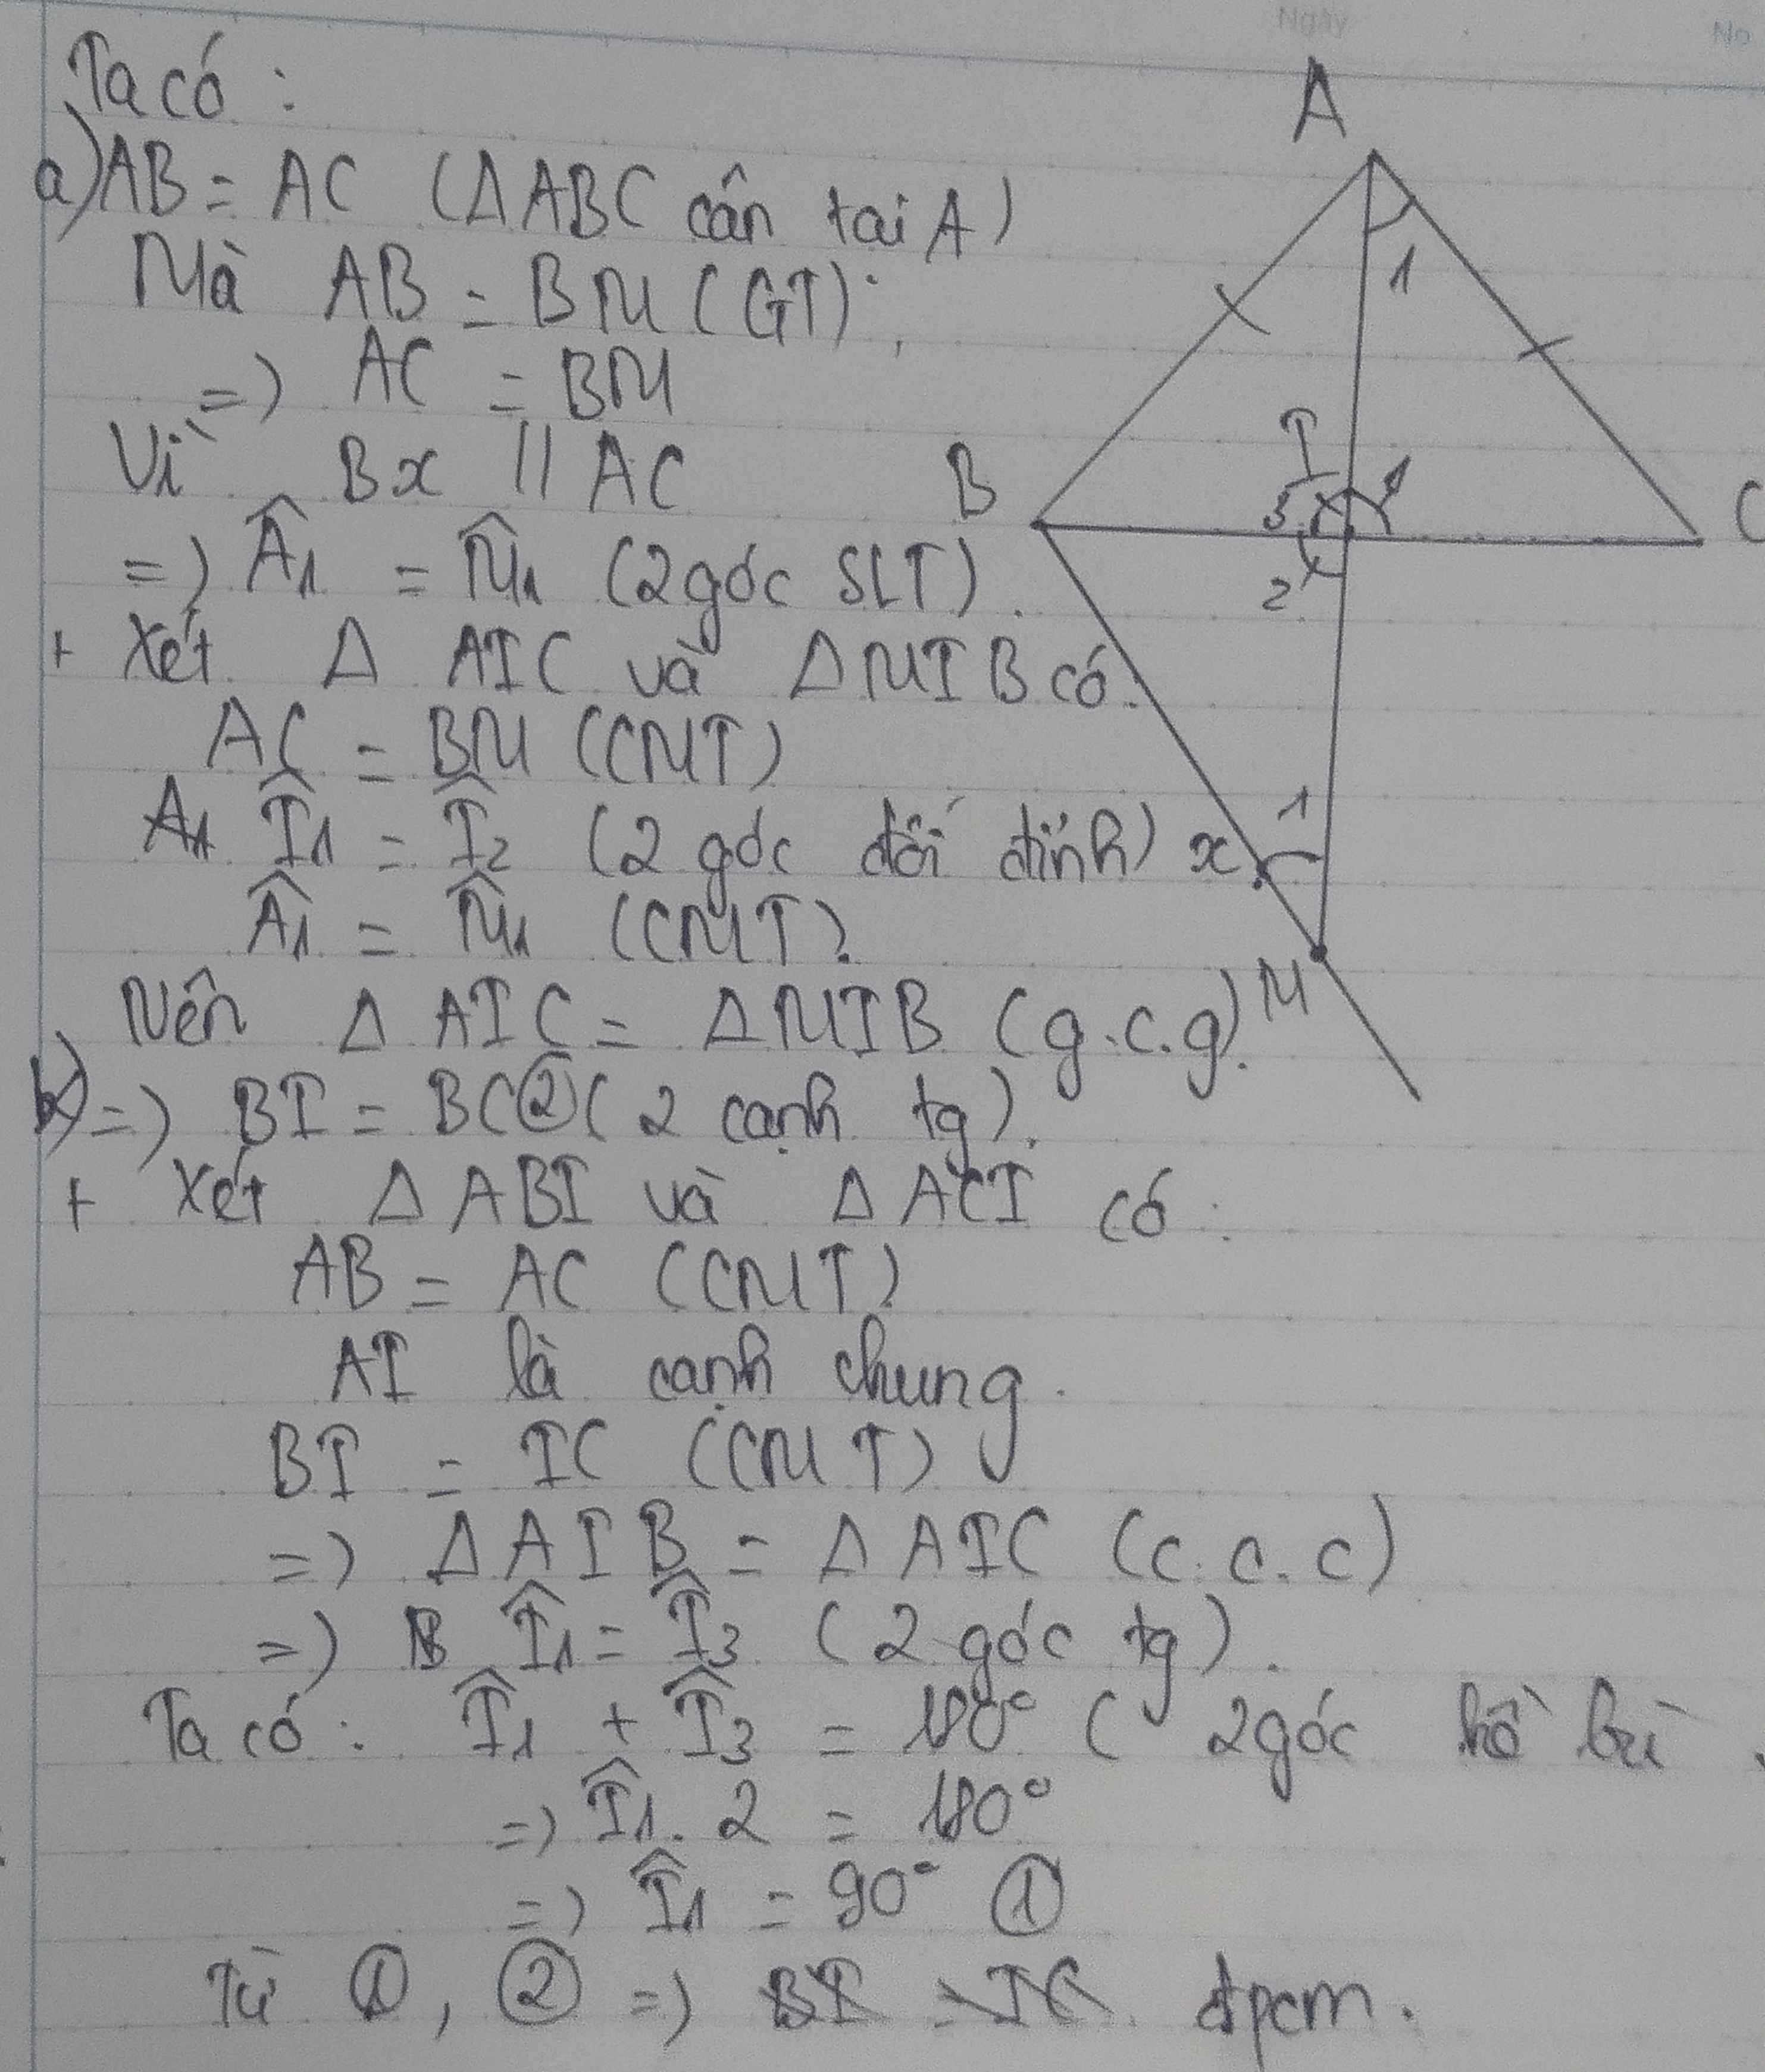 Ngày
No
Ta có :
a) AB = AC (Δ ABC cân tại A)
Mà AB = BM (GT)
=) AC = BM
Vì Bx // AC
=) Â1 = M̂1 (2 góc SLT).
+ Xét Δ AIC và Δ MIB có:
AC = BM (CMT)
Î1 = Î2 (2 góc đối đỉnh)
Â1 = M̂1 (CMT)
Nên Δ AIC = Δ MIB (g.c.g).
b) =) BI = BC ② (2 cạnh tg).
+ Xét Δ ABI và Δ ACI có :
AB = AC (CMT)
AI là cạnh chung.
BI = IC (CMT)
=) Δ AIB = Δ AIC (c.c.c)
=) Î1 = Î3 (2 góc tg).
Ta có: Î1 + Î3 = 180° ( 2 góc kề bù
=) Î1. 2 = 180°
=) Î1 = 90° ①
Từ ①, ② =) đpcm.
A
1
I
B
3
1
C
2
1
x
M